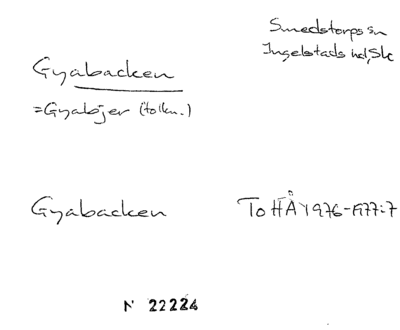 Smedstorps sn
Ingelstads hd, Sk
Gyabacken
=Gyabjer (tolkn.)
Gyabacken
ToHÅ 1976-1977:7
N 22224